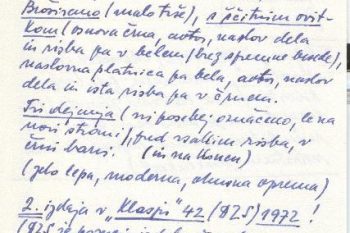 Broširano (malo tiše), s ščitnim ovit-
kom (osnova črna, avtor, naslov dela
in risba pa v belem / brez spremne besede),
naslovna platnica pa bela, avtor, naslov
dela in ista risba pa v črnem.
Tri dejanja (ni posebej označeno, le na
novi strani), pred vsakim risba, v
črni barvi. (in na koncu)
(zelo lepa, moderna, okusna oprema)
2. izdaja v "Klasju" 42 (DZS) 1972!
(DZS je